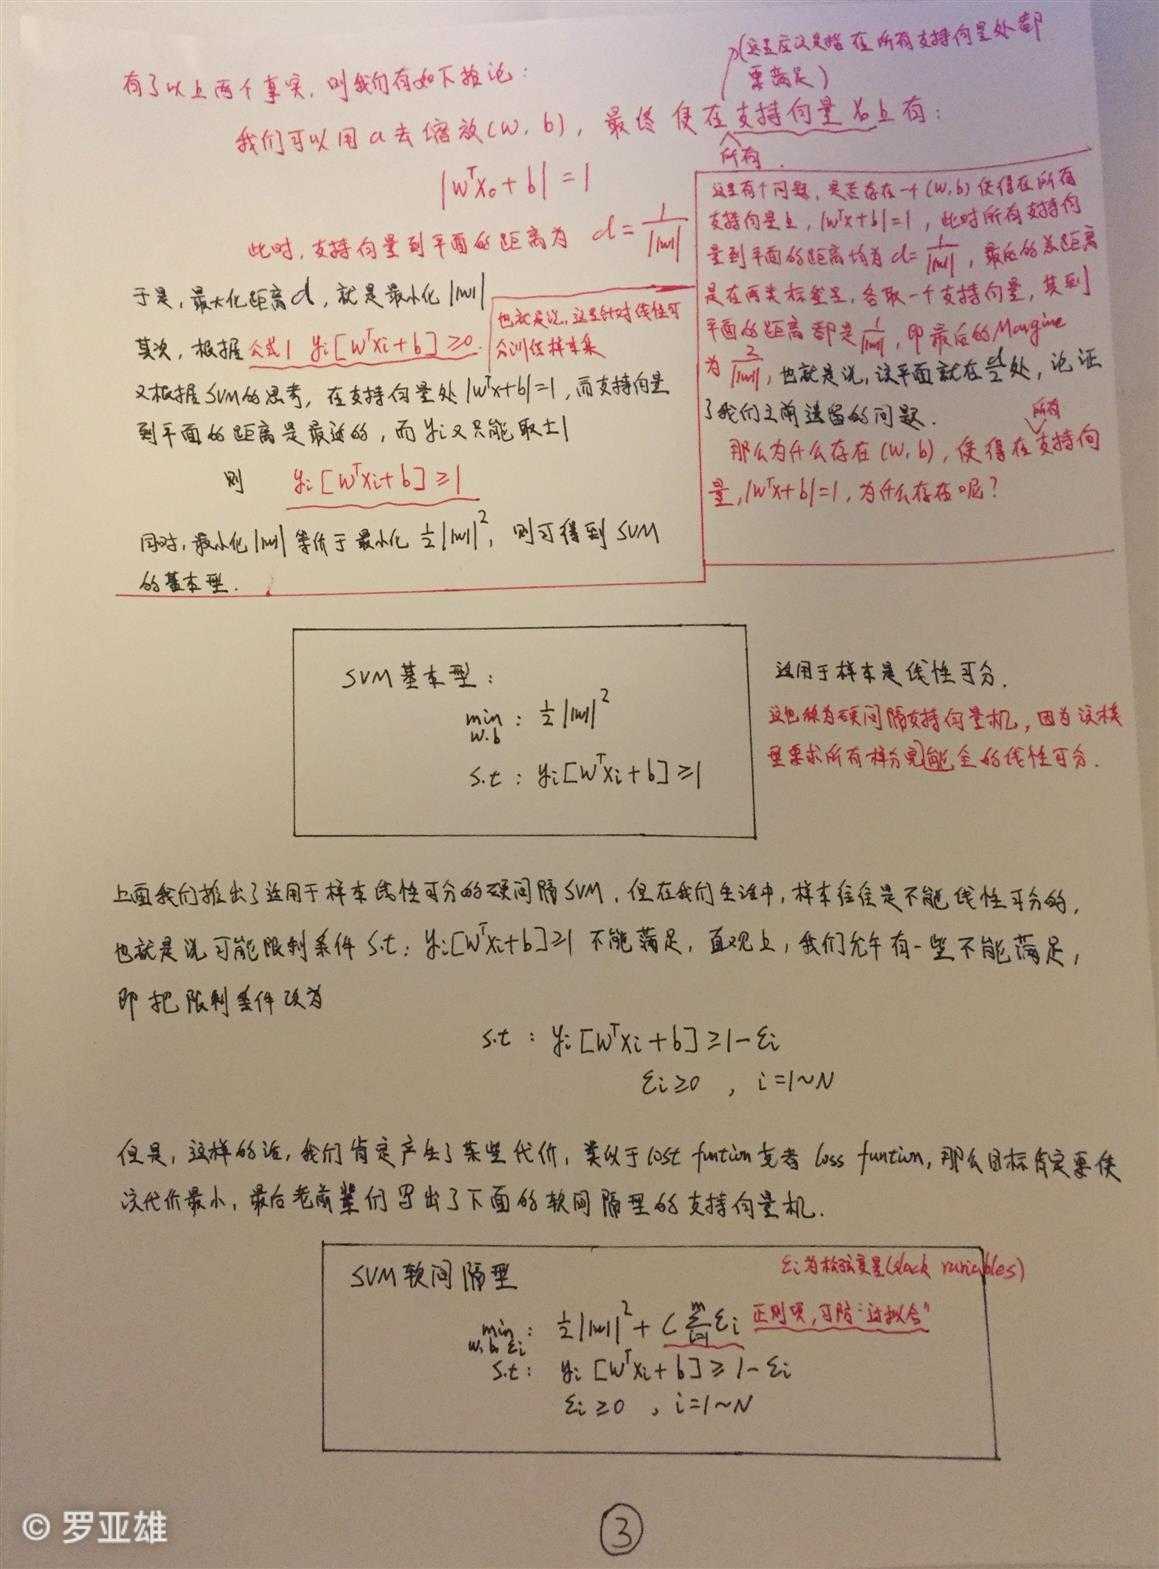 (这里应该是指在所有支持向量处都
要满足)
有了以上两个事实,则我们有如下推论:
我们可以用a去缩放(w,b),最终使在支持向量x₀上有:
所有
|wᵀx₀+b|=1
此时,支持向量到平面的距离为 d=1/||w||
于是,最大化距离d,就是最小化||w||
其次,根据公式1 yᵢ[wᵀxᵢ+b]≥0.
也就是说,这是针对线性可
分训练样本集
又根据SVM的思考,在支持向量处|wᵀx+b|=1,而支持向量
到平面的距离是最近的,而yᵢ又只能取±1
则 yᵢ[wᵀxᵢ+b]≥1
同时,最小化||w||等价于最小化½||w||²,则可得到SVM
的基本型.
这里有个问题,是否存在一个(w,b)使得在所有
支持向量上,|wᵀx+b|=1,此时所有支持向
量到平面的距离均为d=1/||w||,最后的总距离
是在两类标签里,各取一个支持向量,其到
平面的距离都是1/||w||,即最后的Margine
为2/||w||,也就是说,该平面就在d/2处,论证
了我们之前遗留的问题.
所有
那么为什么存在(w,b),使得在支持向
量,|wᵀx+b|=1,为什么存在呢?
SVM基本型:
min : ½||w||²
w.b
s.t: yᵢ[wᵀxᵢ+b]≥1
适用于样本是线性可分.
这也称为硬间隔支持向量机,因为这模
型要求所有样分完能全的线性可分.
上面我们推出了适用于样本线性可分的硬间隔SVM,但在我们生活中,样本往往是不能线性可分的,
也就是说可能限制条件 s.t: yᵢ[wᵀxᵢ+b]≥1 不能满足,直观上,我们允许有一些不能满足,
即把限制条件改为
s.t : yᵢ[wᵀxᵢ+b]≥1-εᵢ
εᵢ≥0 , i=1~N
但是,这样的话,我们肯定产生了某些代价,类似于cost funtion或者 loss funtion,那么目标肯定要使
该代价最小,最后老前辈们写出了下面的软间隔型的支持向量机.
SVM软间隔型
εᵢ为松弛变量(slack variables)
min : ½||w||²+C∑ᵢ₌₁ᵐεᵢ 正则项,可防“过拟合”
w.b.εᵢ
s.t: yᵢ[wᵀxᵢ+b]≥1-εᵢ
εᵢ≥0 , i=1~N
© 罗亚雄
③